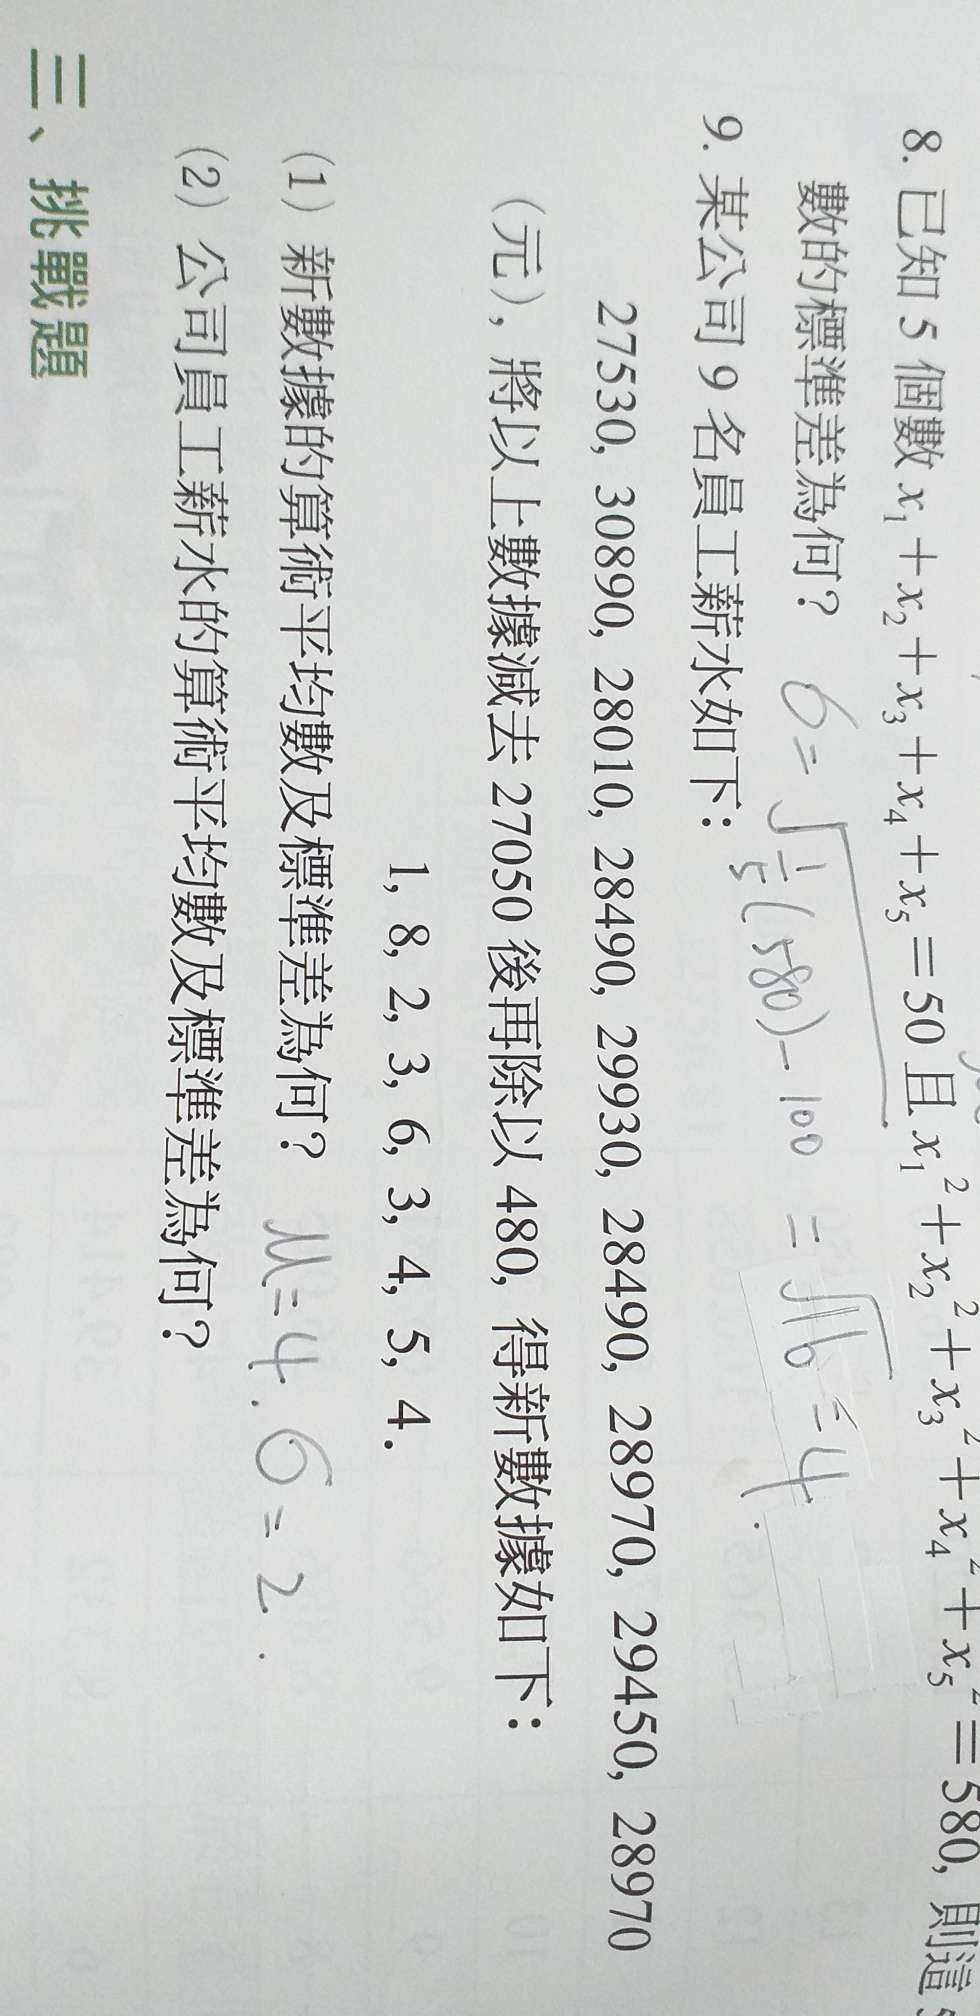 8. 已知 5 個數 x₁＋x₂＋x₃＋x₄＋x₅＝50 且 x₁²＋x₂²＋x₃²＋x₄²＋x₅²＝580, 則這
數的標準差為何? σ=√(1/5(580)-100) =√16 =4.
9. 某公司 9 名員工薪水如下：
27530, 30890, 28010, 28490, 29930, 28490, 28970, 29450, 28970
(元), 將以上數據減去 27050 後再除以 480, 得新數據如下：
1, 8, 2, 3, 6, 3, 4, 5, 4.
(1) 新數據的算術平均數及標準差為何? μ=4. σ=2.
(2) 公司員工薪水的算術平均數及標準差為何?
三、挑戰題